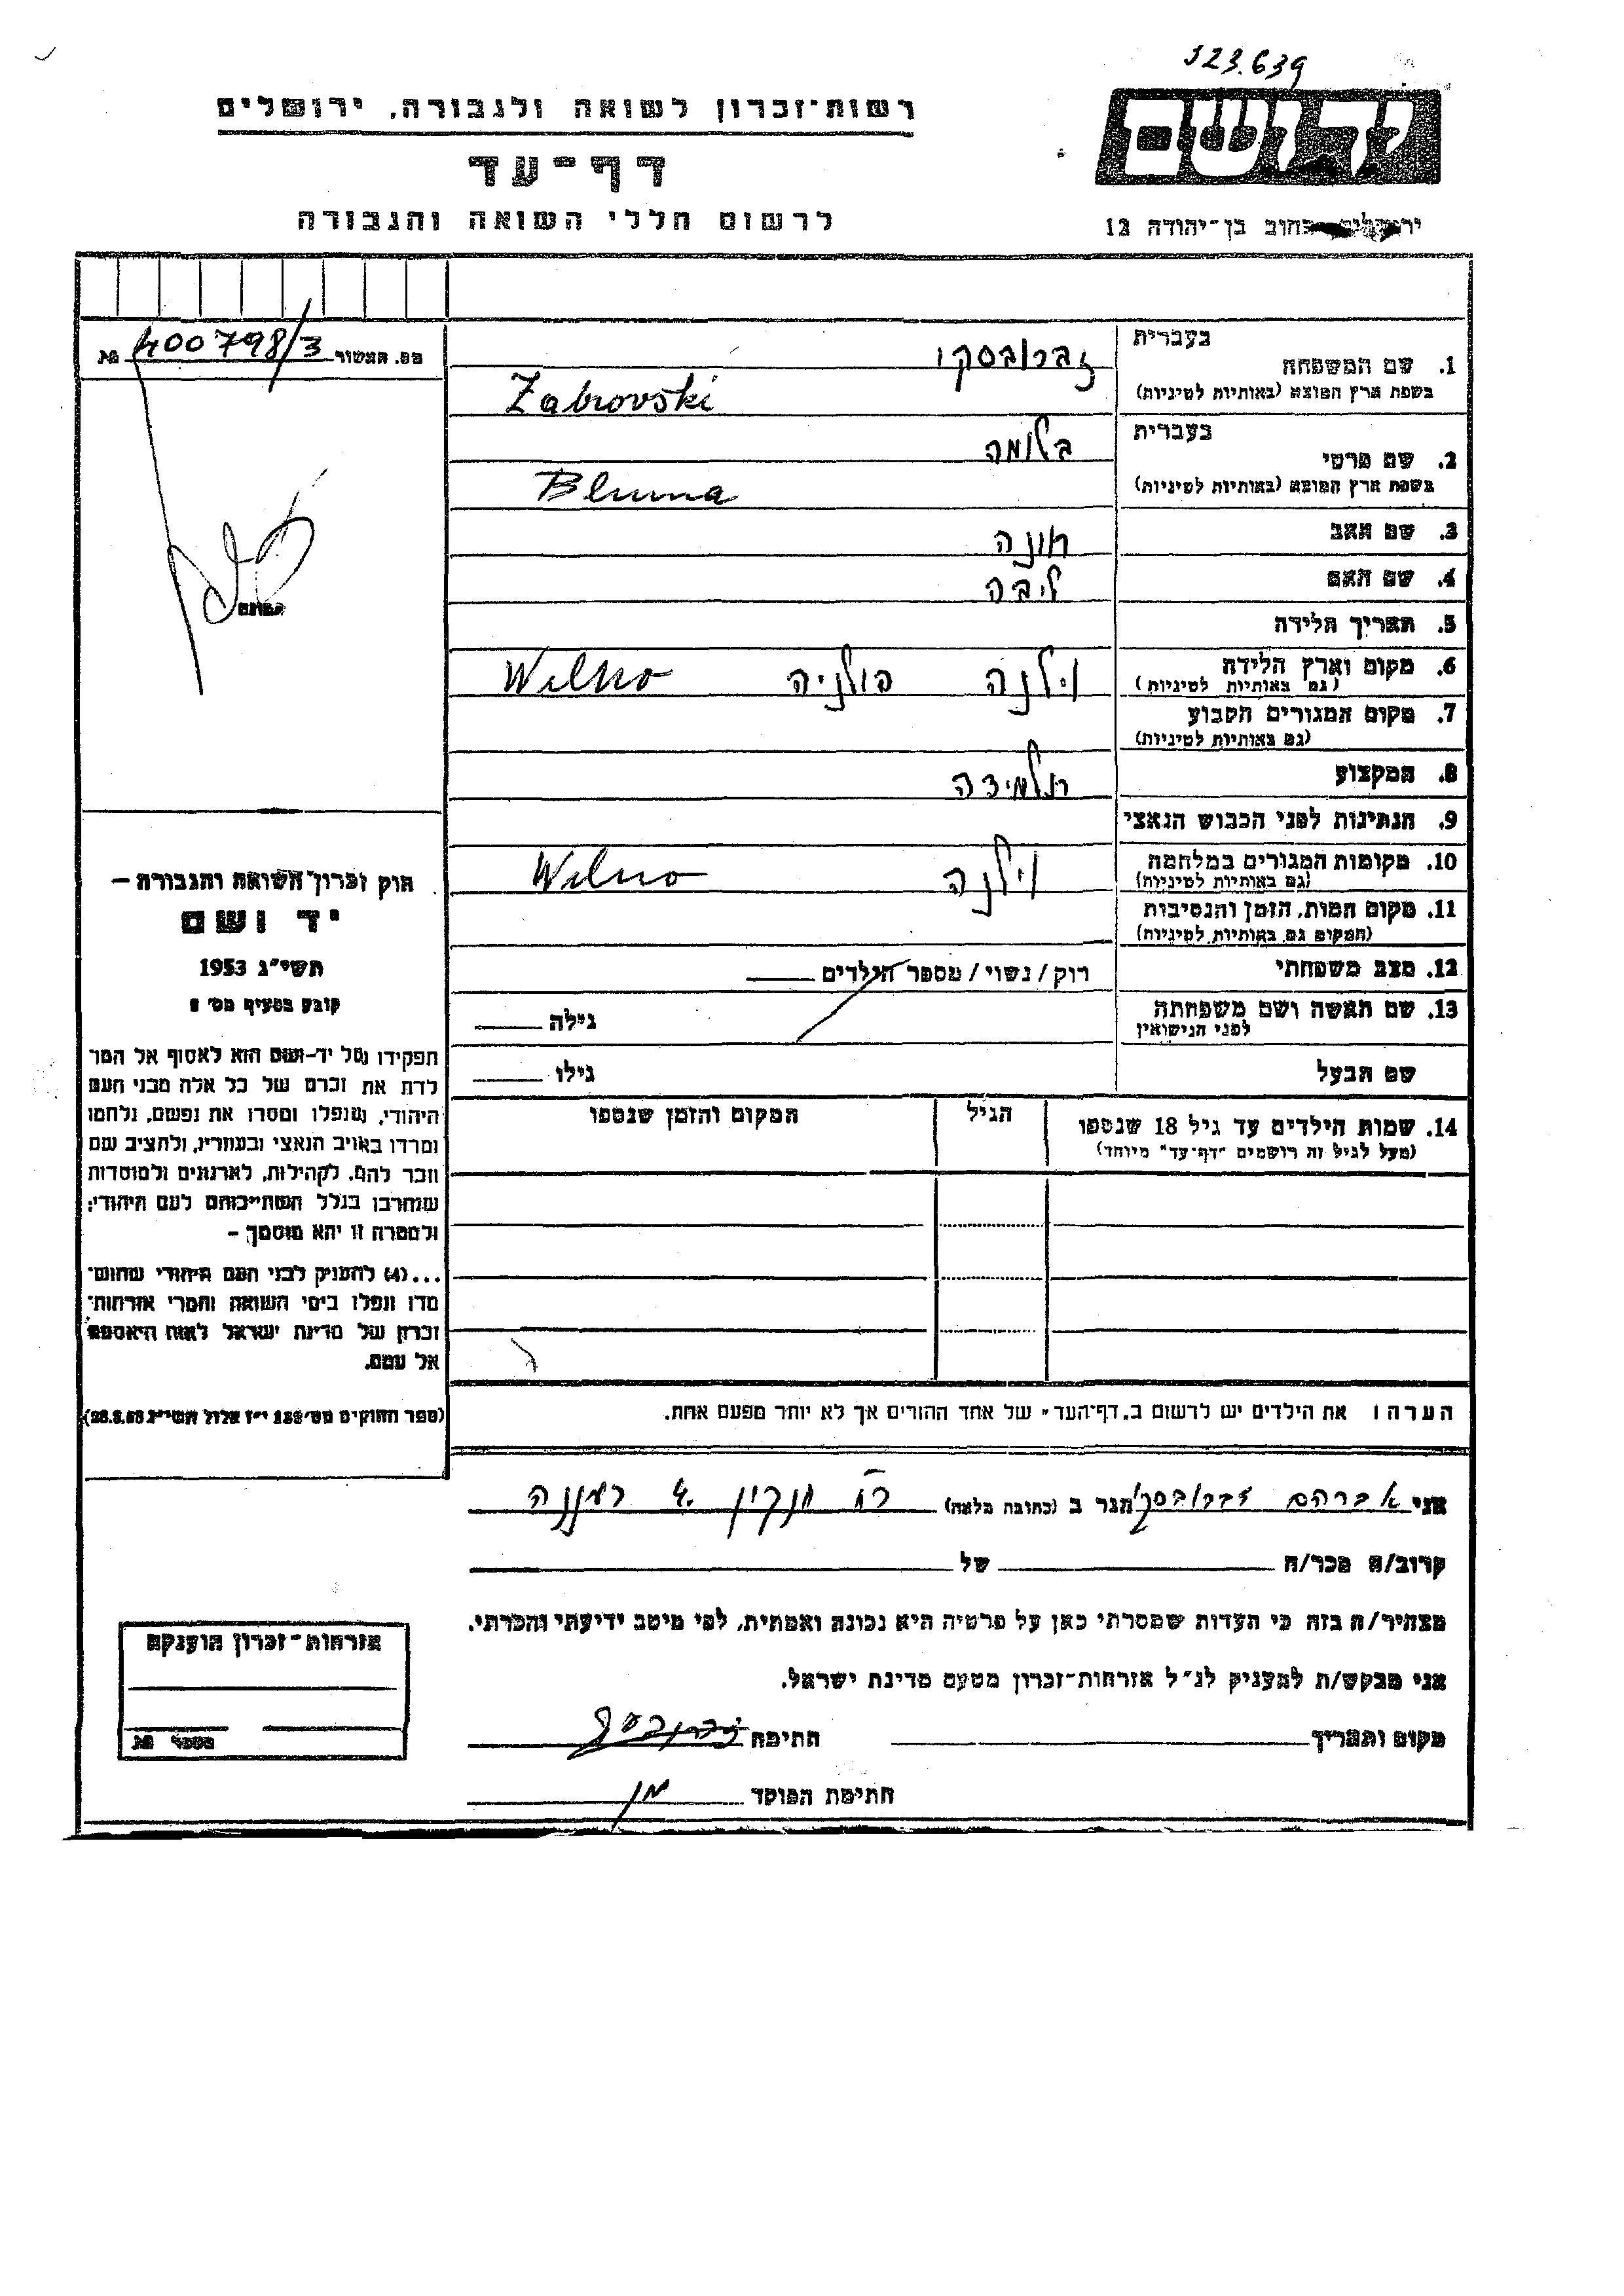 523.639
יד ושם
רשות-זכרון לשואה ולגבורה, ירושלים
דף-עד
לרשום חללי השואה והגבורה
רחוב בן-יהודה 12
מס. האשור 400798/3
1. שם המשפחה
בעברית
זברובסקי
בשפת ארץ המוצא (באותיות לטיניות)
Zabrovski
2. שם פרטי
בעברית
בלומה
בשפת ארץ המוצא (באותיות לטיניות)
Bluma
3. שם האב
יונה
4. שם האם
ליבה
5. תאריך הלידה
6. מקום וארץ הלידה
(גם באותיות לטיניות)
וילנה פולניה Wilno
7. מקום המגורים הקבוע
(גם באותיות לטיניות)
8. המקצוע
תלמידה
9. הנתינות לפני הכבוש הנאצי
10. מקומות המגורים במלחמה
(גם באותיות לטיניות)
וילנה Wilno
11. מקום המות, הזמן והנסיבות
(המקום גם באותיות לטיניות)
12. מצב משפחתי
רוק / נשוי / מספר הילדים
13. שם האשה ושם משפחתה
לפני הנישואין
גילה
שם הבעל
גילו
14. שמות הילדים עד גיל 18 שנספו
(מעל לגיל זה רושמים "דף-עד" מיוחד)
הגיל
המקום והזמן שנספו
הערה: את הילדים יש לרשום ב"דף-העד" של אחד ההורים אך לא יותר מפעם אחת.
התמונה
חוק זכרון השואה והגבורה –
יד ושם
תשי"ג 1953
קובע בסעיף מס'
תפקידו של יד-ושם הוא לאסוף אל המו־
לדת את זכרם של כל אלה מבני העם
היהודי, שנפלו ומסרו את נפשם, נלחמו
ומרדו באויב הנאצי ובעוזריו, ולהציב שם
וזכר להם, לקהילות, לארגונים ולמוסדות
שנחרבו בגלל השתייכותם לעם היהודי;
ולמטרה זו יהא מוסמך –
...(4) להעניק לבני העם היהודי שהוש־
מדו ונפלו בימי השואה והמרי אזרחות־
זכרון של מדינת ישראל לאות היאספם
אל עמם.
(ספר החוקים מס' 132 י"ז אלול תשי"ג 28.8.53)
אני אברהם זברובסקי הגר ב (כתובת מלאה) רח 4 רעננה
קרוב/ה מכר/ה של
מצהיר/ה בזה כי העדות שמסרתי כאן על פרטיה היא נכונה ואמתית, לפי מיטב ידיעתי והכרתי.
אני מבקש/ת להעניק לנ"ל אזרחות-זכרון מטעם מדינת ישראל.
מקום ותאריך חתימה זברובסקי
חתימת הפוקד
אזרחות-זכרון הוענקה